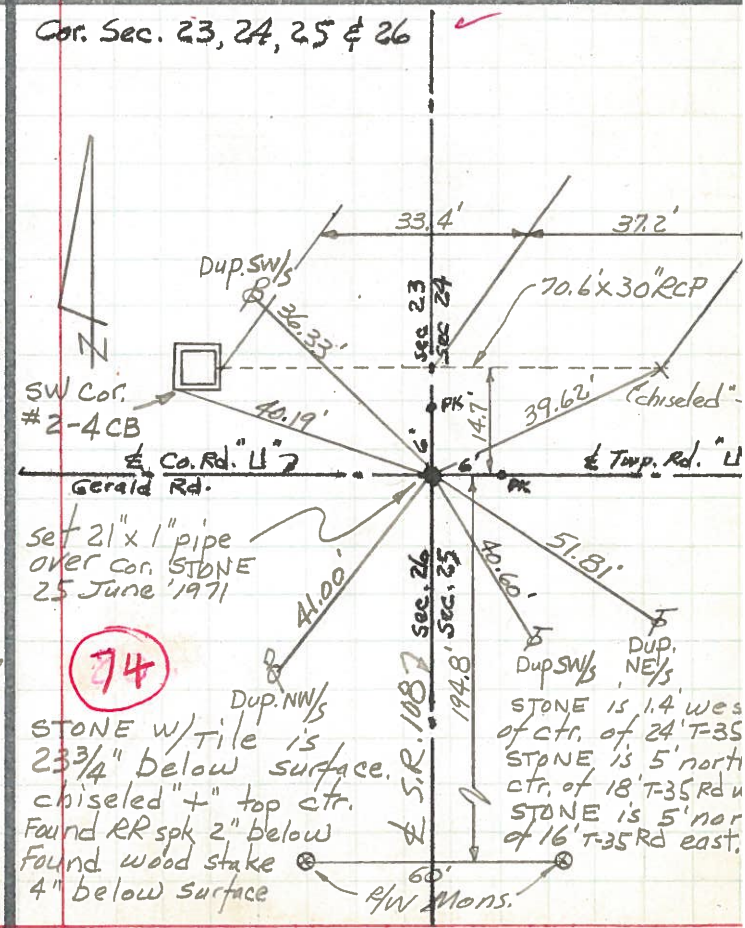 Cor. Sec. 23, 24, 25 & 26
33.4'
37.2'
Dup. SW/s
36.33'
sec 23
sec 24
70.6' x 30" RCP
N
SW Cor.
#2-4 CB
40.19'
PK
14.7'
39.62'
"chiseled"
6'
6'
℄ Co. Rd. "U"
Gerald Rd.
℄ Twp. Rd. "U
PK
set 21" x 1" pipe
over cor. STONE
25 June '1971
41.00'
sec. 26
sec. 25
40.60'
51.81'
74
Dup. NW/s
Dup SW/s
Dup. NE/s
194.8'
℄ S.R. 108
STONE w/ Tile is
23 3/4" below surface.
chiseled "+" top ctr.
Found RR spk 2" below
Found wood stake
4" below surface
STONE is 1.4' wes
of ctr. of 24' T-35
STONE is 5' nort
ctr. of 18' T-35 Rd w
STONE is 5' nor
of 16' T-35 Rd east.
60'
R/W Mons.